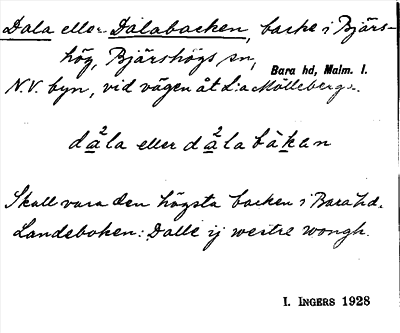 Dala eller Dalabacken, backe i Bjärs-
hög, Bjärshögs sn,
Bara hd, Malm. l.
N.V. byn, vid vägen åt L:a Mölleberga.
da²la eller da²labàkan
Skall vara den högsta backen i Bara hd.
Landeboken: Dalle ij westre wongh.
I. INGERS 1928